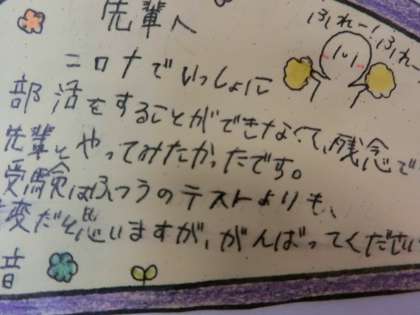 先輩へ
ふれー！ふれー
コロナでいっしょに
部活をすることができなくて、残念で
先輩とやってみたかったです。
受験はふつうのテストよりも、
変だと思いますが、がんばってください
音